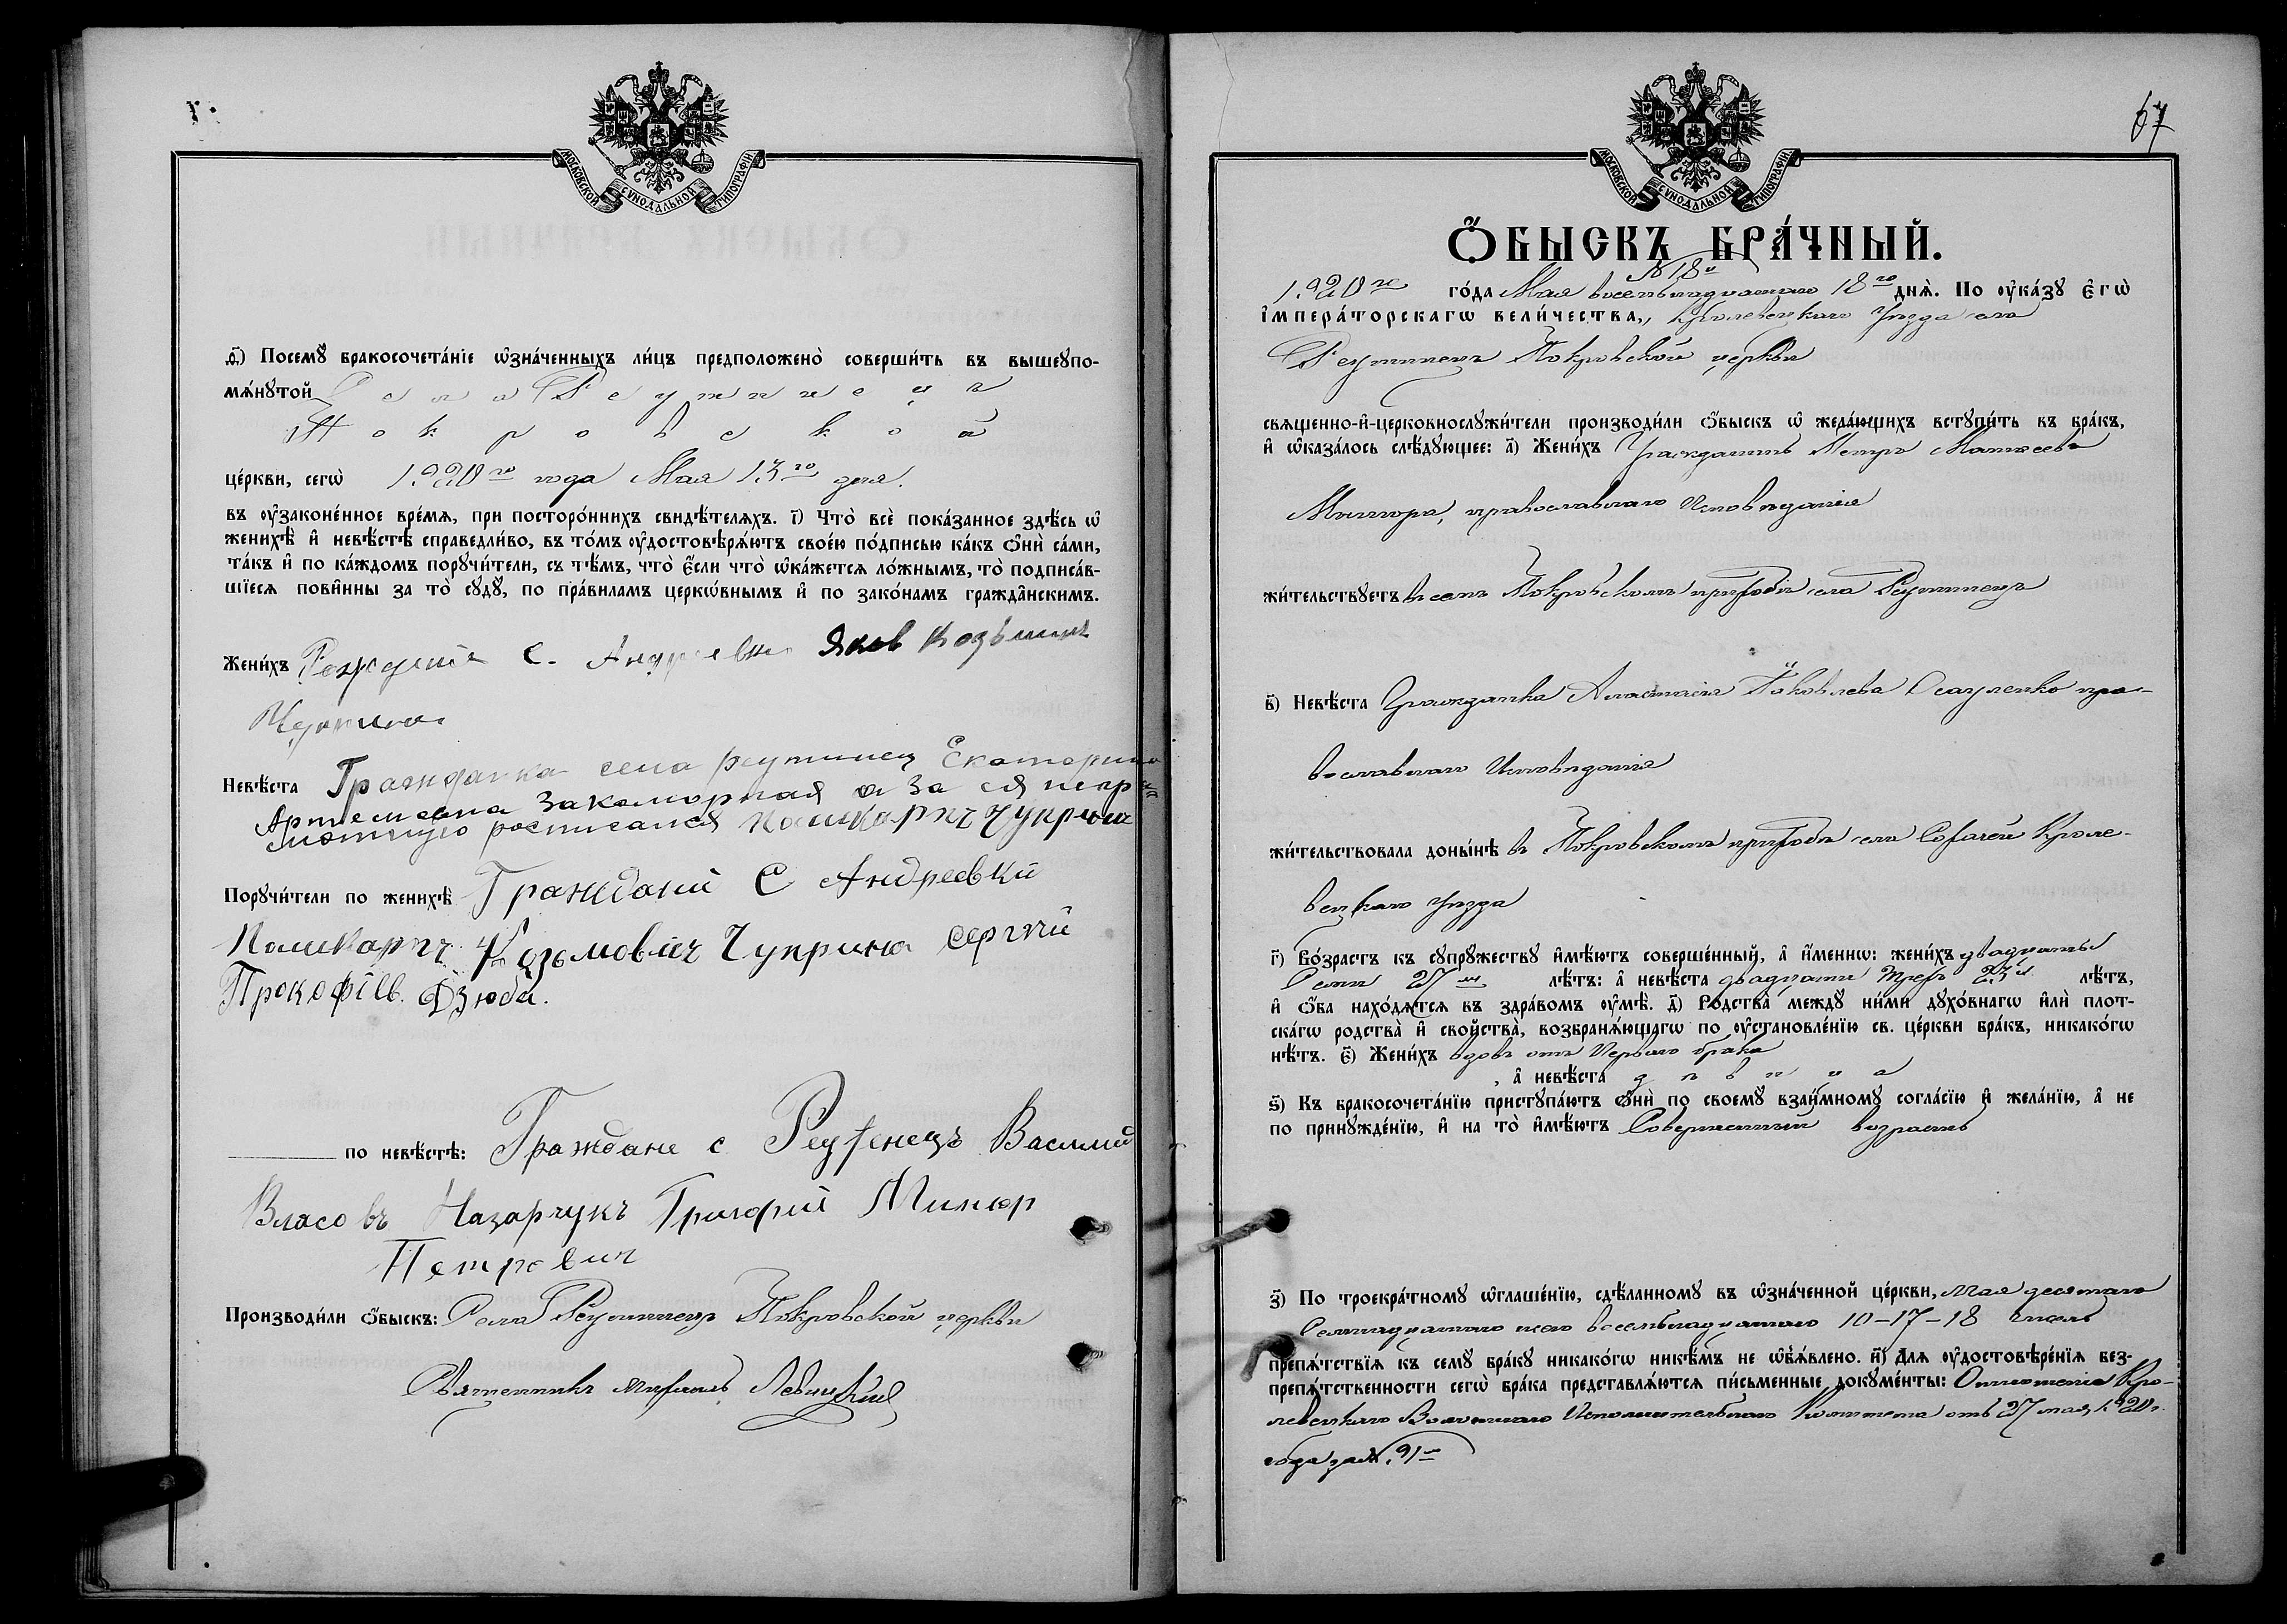 МОСКОВСКОЙ СѴНОДАЛЬНОЙ ТИПОГРАФІИ
ѳ҃) Посемꙋ̀ бракосочета́нїе ѡ҆зна́ченныхъ ли́цъ предположено̀ соверши́ть въ вышеꙋпо-
мѧ́нꙋтой Села Реутинецъ
Покровской
це́ркви, сегѡ̀ 1920го года Мая 13го дня.
въ ᲂу҆законе́нное вре́мѧ, при посторо́ннихъ свидѣ́телѧхъ. і҃) Что̀ всѐ пока́занное здѣ́сь ѡ҆
женихѣ̀ и҆ невѣ́стѣ справедли́во, въ то́мъ ᲂу҆достовѣрѧ́ютъ свое́ю по́дписью ка́къ ѻ҆нѝ са́ми,
та́къ и҆ по ка́ждомъ порꙋчи́тели, съ тѣ́мъ, что̀ є҆́сли что̀ ѡ҆ка́жетсѧ ло́жнымъ, то̀ подписа́в-
шїесѧ пови́нны за то̀ сꙋдꙋ̀, по пра́виламъ церко́внымъ и҆ по зако́намъ гражда̑нскимъ.
Жени́хъ с. Андреевки Яков Козьмичъ
Невѣ́ста Гражданка села реутинец Екатерина
Артемовна Закоморная а За ея негр
мотную росписался Полікарпъ Чуприна
Порꙋчи́тели по женихѣ̀ Граждани С Андреевки
Полікарпъ Козьмович Чуприна Сергѣй
Прокофіев. Дзюба.
по невѣ́стѣ: Граждане с Реутенецъ Василий
Власовъ Назарчукъ Григорий Минюр
Петрович
Производи́ли ѻ҆́быскъ: Села Реутинецъ Покровской церкви
Священникъ Михаилъ Левицкий
67
МОСКОВСКОЙ СѴНОДАЛЬНОЙ ТИПОГРАФІИ
Ѻ҆́БЫСКЪ БРА́ЧНЫЙ.
№ 18й
1920го го́да Мая восемьнадцатаго 18го днѧ̀. По ᲂу҆ка́зꙋ є҆гѡ̀
і҆мпера́торскагѡ вели́чества, Кролевецкаго Уѣзда села
Реутинецъ Покровской церкви
свѧщенно-и҆-церковнослꙋжи́тели производи́ли ѻ҆́быскъ ѡ҆ жела́ющихъ встꙋпи́ть въ бра́къ,
и҆ ѡ҆каза́лось слѣ́дꙋющее: а҃) Жени́хъ Гражданинъ Петръ Матѳеевъ
Минюра, православнаго Исповѣданія
жи́тельствꙋетъ въ селѣ Покровскомъ приходѣ села Реутинецъ
в҃) Невѣ́ста Гражданка Анастасія Яковлева Осауленко пра-
вославнаго Исповѣданія
жи́тельствовала доны́нѣ въ Покровскомъ приходѣ села Собичей Кроле-
вецкаго Уѣзда
г҃) Во́зрастъ къ сꙋпрꙋ́жествꙋ и҆мѣ́ютъ соверше́нный, а҆ и҆́меннѡ: жени́хъ двадцать
Семи 27ми лѣ́тъ: а҆ невѣ́ста двадцати трехъ 23х лѣ́тъ,
и҆ ѻ҆́ба нахо́дѧтсѧ въ здра́вомъ ᲂу҆мѣ̀. д҃) Родства̀ междꙋ̀ ни́ми дꙋхо́внагѡ и҆лѝ плот-
ска́гѡ родства̀ и҆ сво́йства̀, возбранѧ́ющагѡ по ᲂу҆становле́нїю св. це́ркви бра́къ, никако́гѡ
нѣ́тъ. є҃) Жени́хъ вдовъ отъ Перваго брака
, а҆ невѣ́ста дѣвица
ѕ҃) Къ бракосочета́нїю пристꙋпа́ютъ ѻ҆нѝ по своемꙋ̀ взаи́мномꙋ согла́сїю и҆ жела́нїю, а҆ не
по принꙋжде́нїю, и҆ на то̀ и҆мѣ́ютъ Совершенный возрастъ
з҃) По троекра́тномꙋ ѡ҆глаше́нїю, сдѣ́ланномꙋ въ ѡ҆зна́ченной це́ркви, мая десятаго
Семнадцатаго восемьнадцатаго 10–17–18 чиселъ
препѧ́тствїѧ къ семꙋ̀ бра́кꙋ никако́гѡ никѣ́мъ не ѡ҆б̾ѧ́влено. и҃) Длѧ ᲂу҆достовѣре́нїѧ без-
препѧ́тственности сегѡ̀ бра́ка представлѧ́ютсѧ пи́сьменные докꙋме́нты: Отношеніе Кро-
левецкаго Волостнаго Исполнительнаго Комитета отъ 27 мая 1920г.
года за № 91